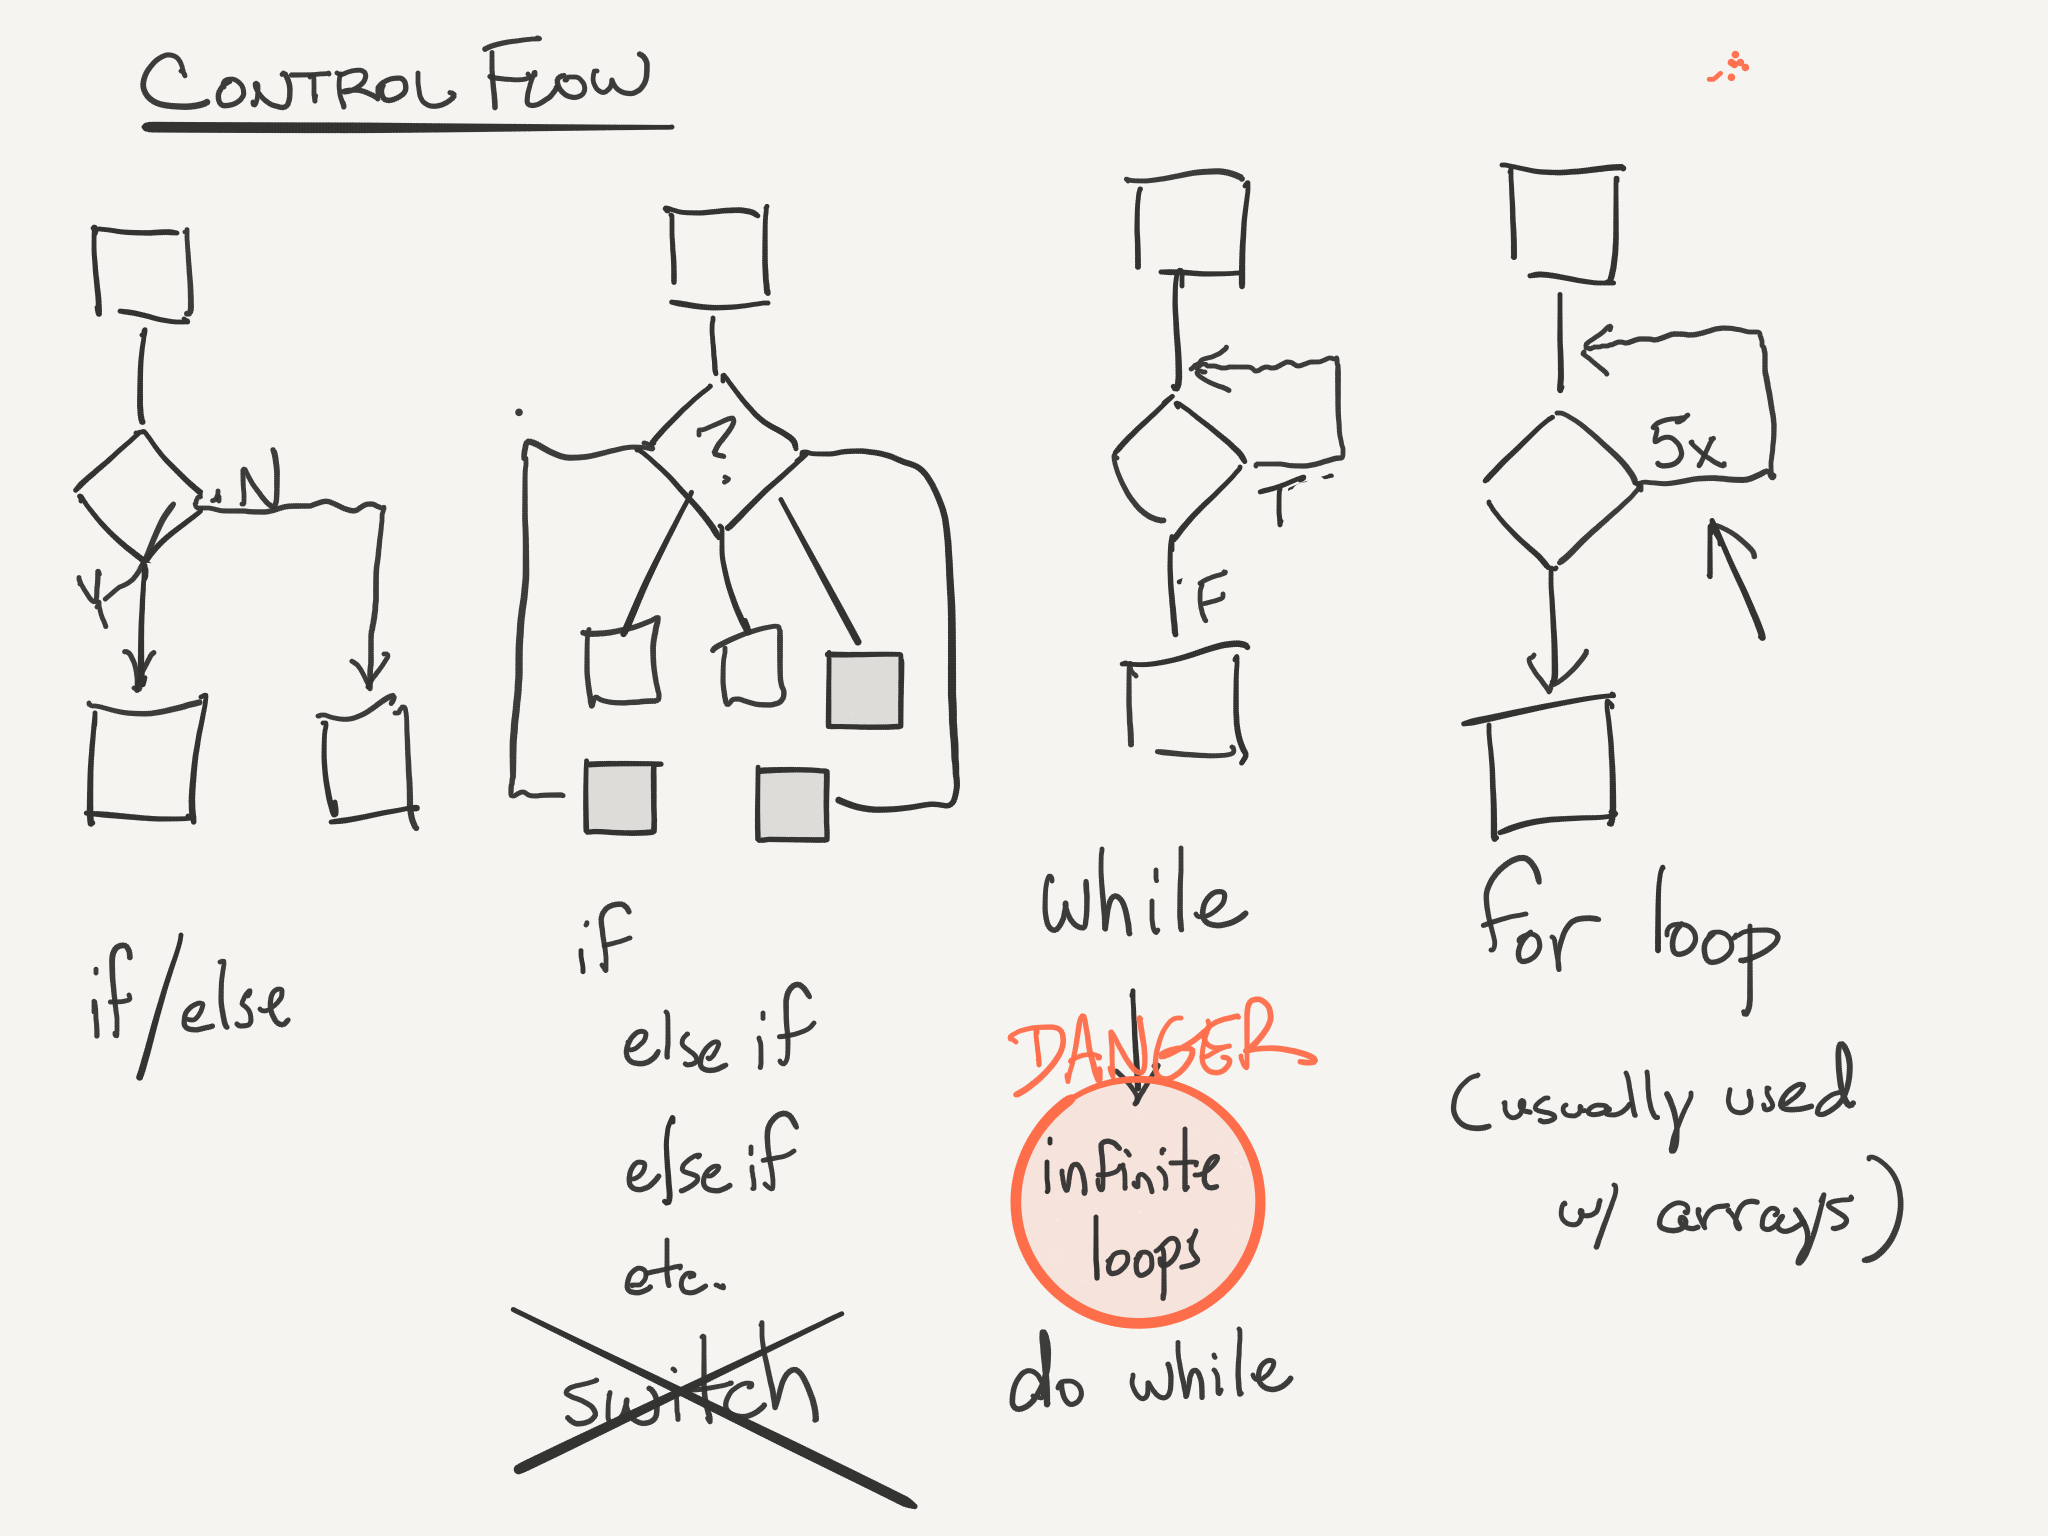 CONTROL FLOW
N
Y
if/else
?
if
else if
else if
etc.
switch
T
F
while
DANGER
infinite
loops
do while
5x
for loop
(usually used
w/ arrays)